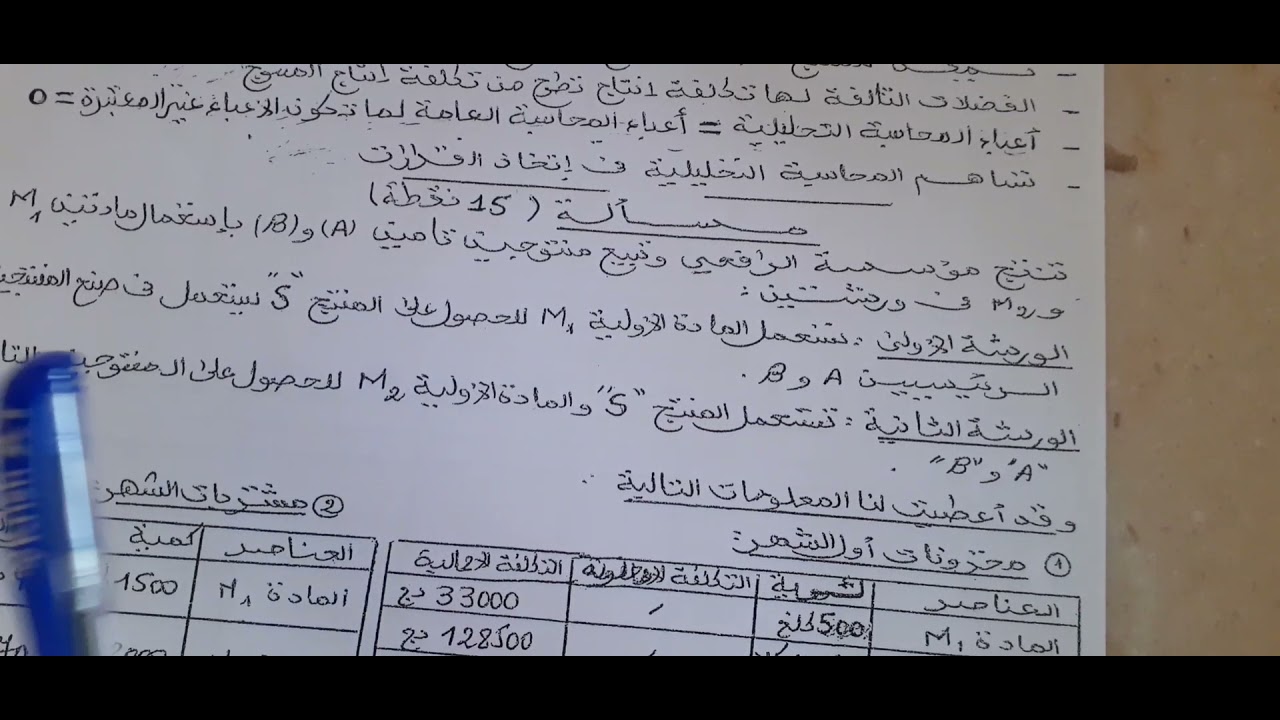 - الفضلات التالفة لها تكلفة إنتاج تطرح من تكلفة إنتاج المنتوج
- أعباء المحاسبة التحليلية = أعباء المحاسبة العامة لما تكون الأعباء غير المعتبرة = 0
- تساهم المحاسبة التحليلية في إتخاذ القرارات
مسألة (15 نقطة)
تنتج مؤسسة الرافعي وتبيع منتوجين تامين (A) و (B) بإستعمال مادتين M1
و M2 في ورشتين :
الورشة الأولى : تستعمل المادة الأولية M1 للحصول على المنتج "S" ليستعمل في صنع المنتجين
الرئيسيين A و B .
الورشة الثانية : تستعمل المنتج "S" والمادة الأولية M2 للحصول على المنتوجين
"A" و "B" .
وقد أعطيت لنا المعلومات التالية :
① مخزونات أول الشهر:
العناصر | الكمية | التكلفة | التكلفة الإجمالية
المادة M1 | 500 كلغ | / | 33000 دج
128500 دج
② مشتريات الشهر:
العناصر | كمية
المادة M1 | 1500